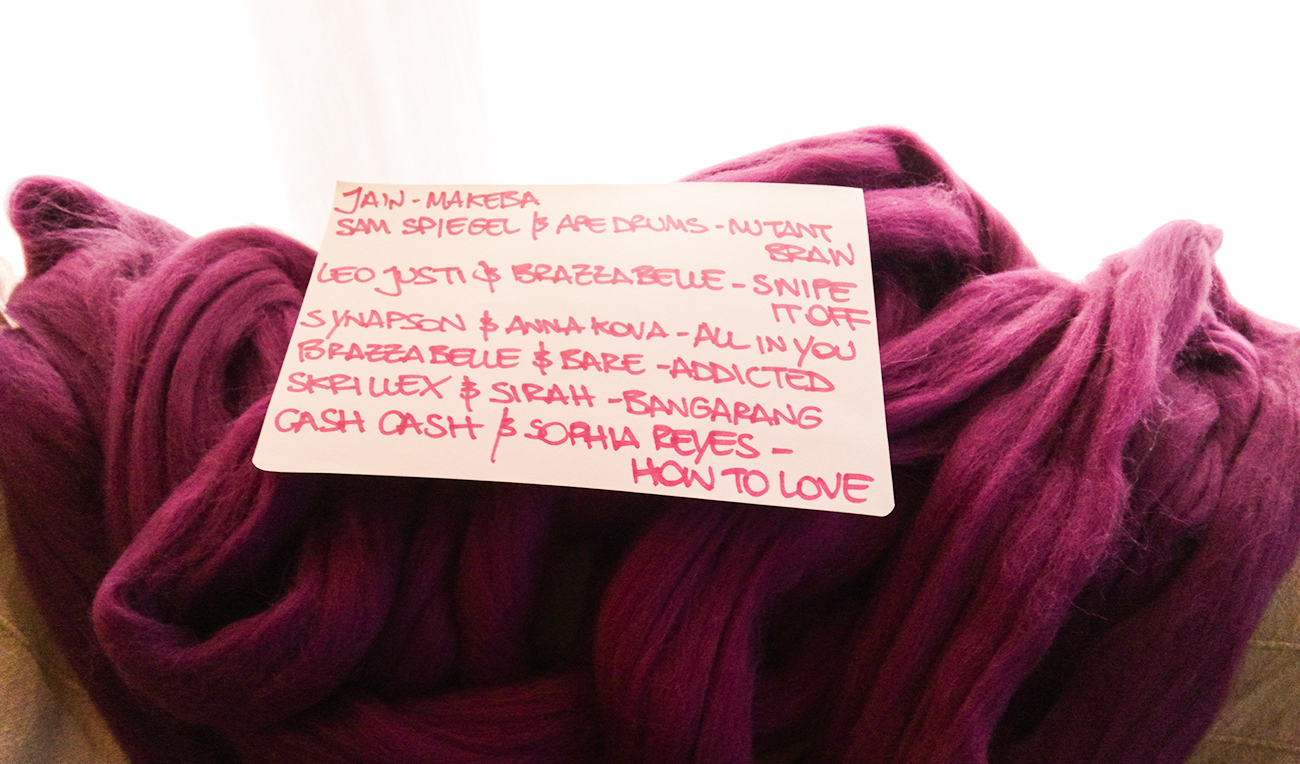 JAIN - MAKEBA
SAM SPIEGEL & APE DRUMS - MUTANT
BRAIN
LEO JUSTI & BRAZZABELLE - SNIPE
IT OFF
SYNAPSON & ANNA KOVA - ALL IN YOU
BRAZZABELLE & BARE - ADDICTED
SKRILLEX & SIRAH - BANGARANG
CASH CASH & SOPHIA REYES -
HOW TO LOVE